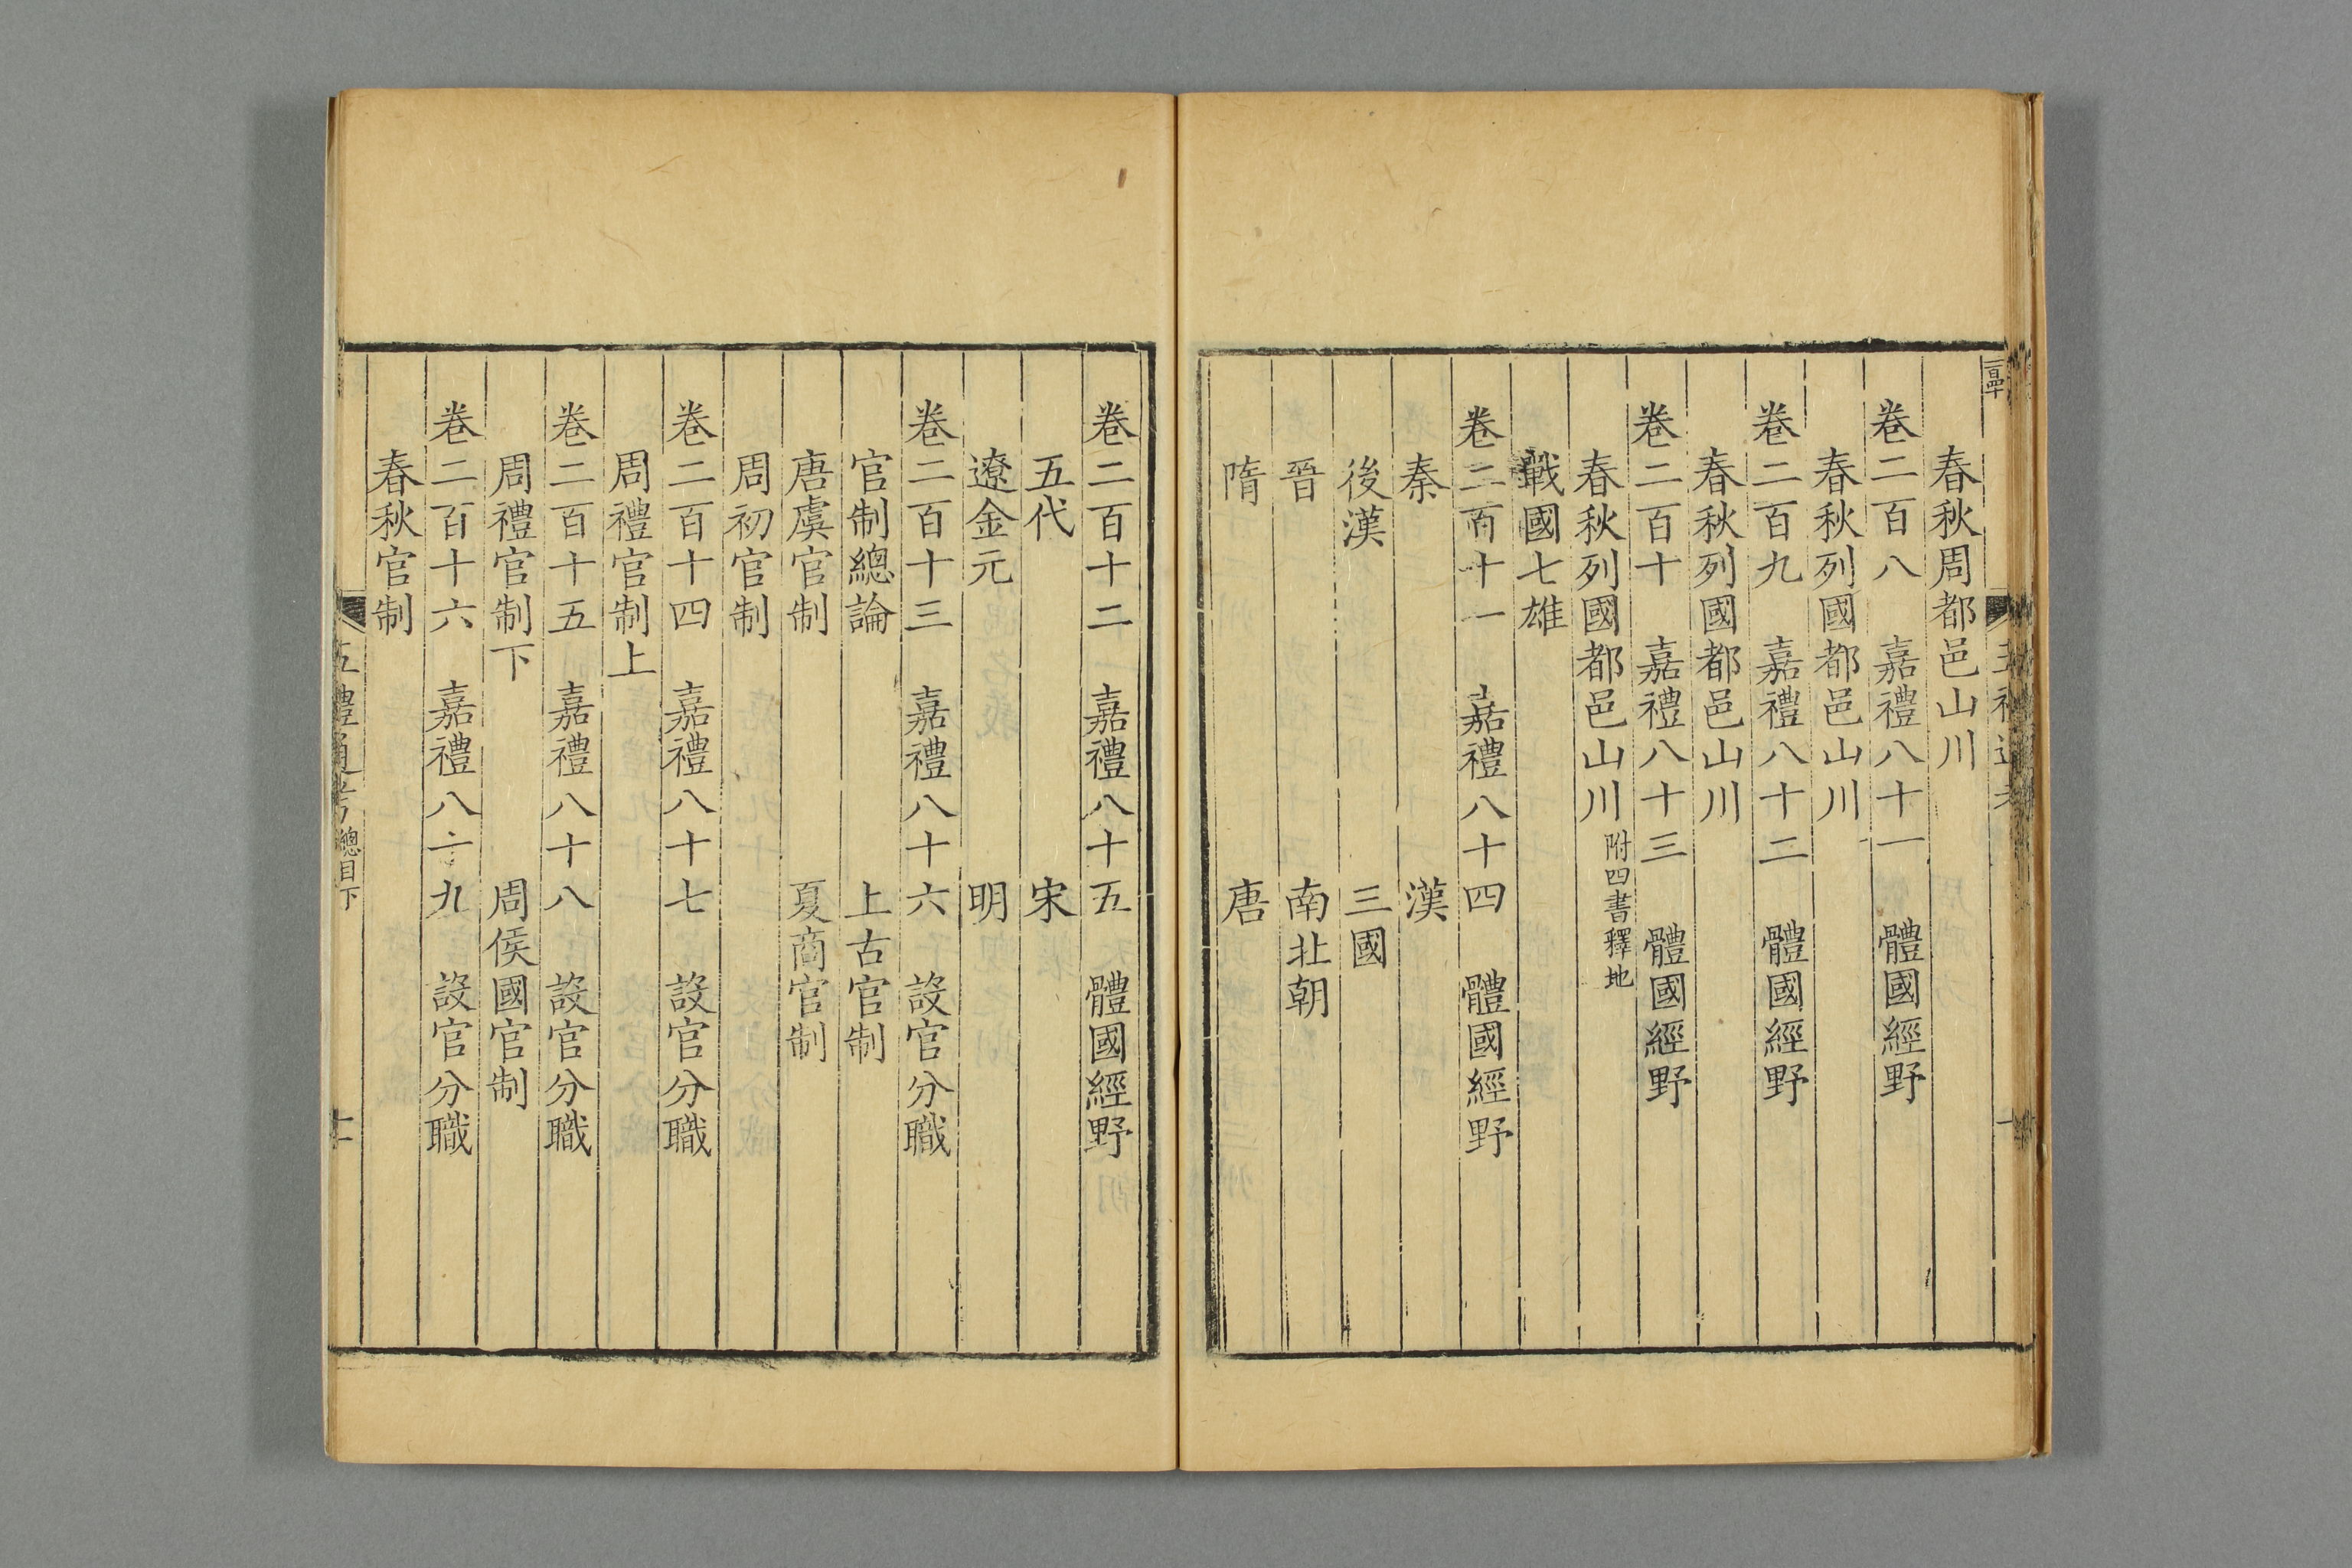 春秋周都邑山川
卷二百八　嘉禮八十一　體國經野
春秋列國都邑山川
卷二百九　嘉禮八十二　體國經野
春秋列國都邑山川
卷二百十　嘉禮八十三　體國經野
春秋列國都邑山川附四書釋地
戰國七雄
卷二百十一　嘉禮八十四　體國經野
秦　漢
後漢　三國
晉　南北朝
隋　唐
卷二百十二　嘉禮八十五　體國經野
五代　宋
遼金元　明
卷二百十三　嘉禮八十六　設官分職
官制總論　上古官制
唐虞官制　夏商官制
周初官制
卷二百十四　嘉禮八十七　設官分職
周禮官制上
卷二百十五　嘉禮八十八　設官分職
周禮官制下　周侯國官制
卷二百十六　嘉禮八十九　設官分職
春秋官制
五禮通考總目下